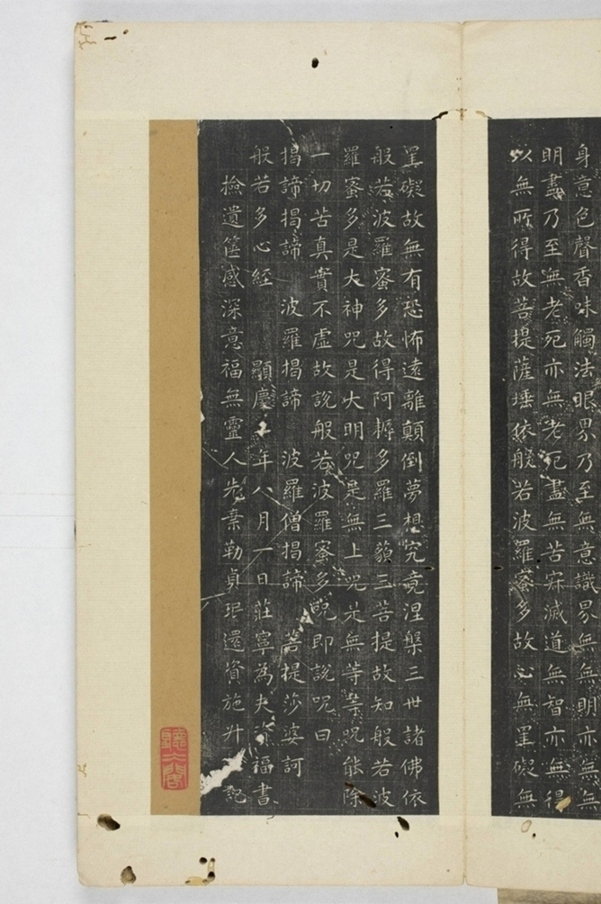 身意色聲香味觸法眼界乃至無意識界無無明亦無無
明盡乃至無老死亦無老死盡無苦寂滅道無智亦無得
以無所得故菩提薩埵依般若波羅蜜多故心無罣礙無
罣礙故無有恐怖遠離顛倒夢想究竟涅槃三世諸佛依
般若波羅蜜多故得阿耨多羅三藐三菩提故知般若波
羅蜜多是大神咒是大明咒是無上咒是無等等咒能除
一切苦真實不虛故說般若波羅蜜多咒即說咒曰
揭諦揭諦 波羅揭諦 波羅僧揭諦 菩提莎婆訶
般若多心經 顯慶 年八月一日莊寧為夫 福書
撿遺篋感深意福無靈人 素勒貞珉還資施 記